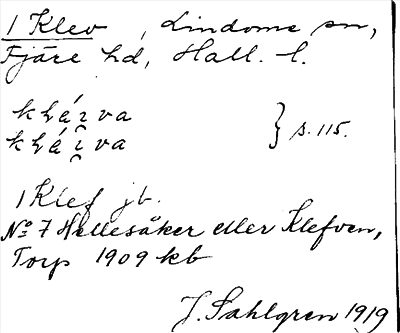 1 Klev, Lindome sn,
Fjäre hd, Hall. l.
} s. 115.
1 Klef jb.
No 7 Hellesåker eller Klefven,
Torp 1909 kb
J. Sahlgren 1919